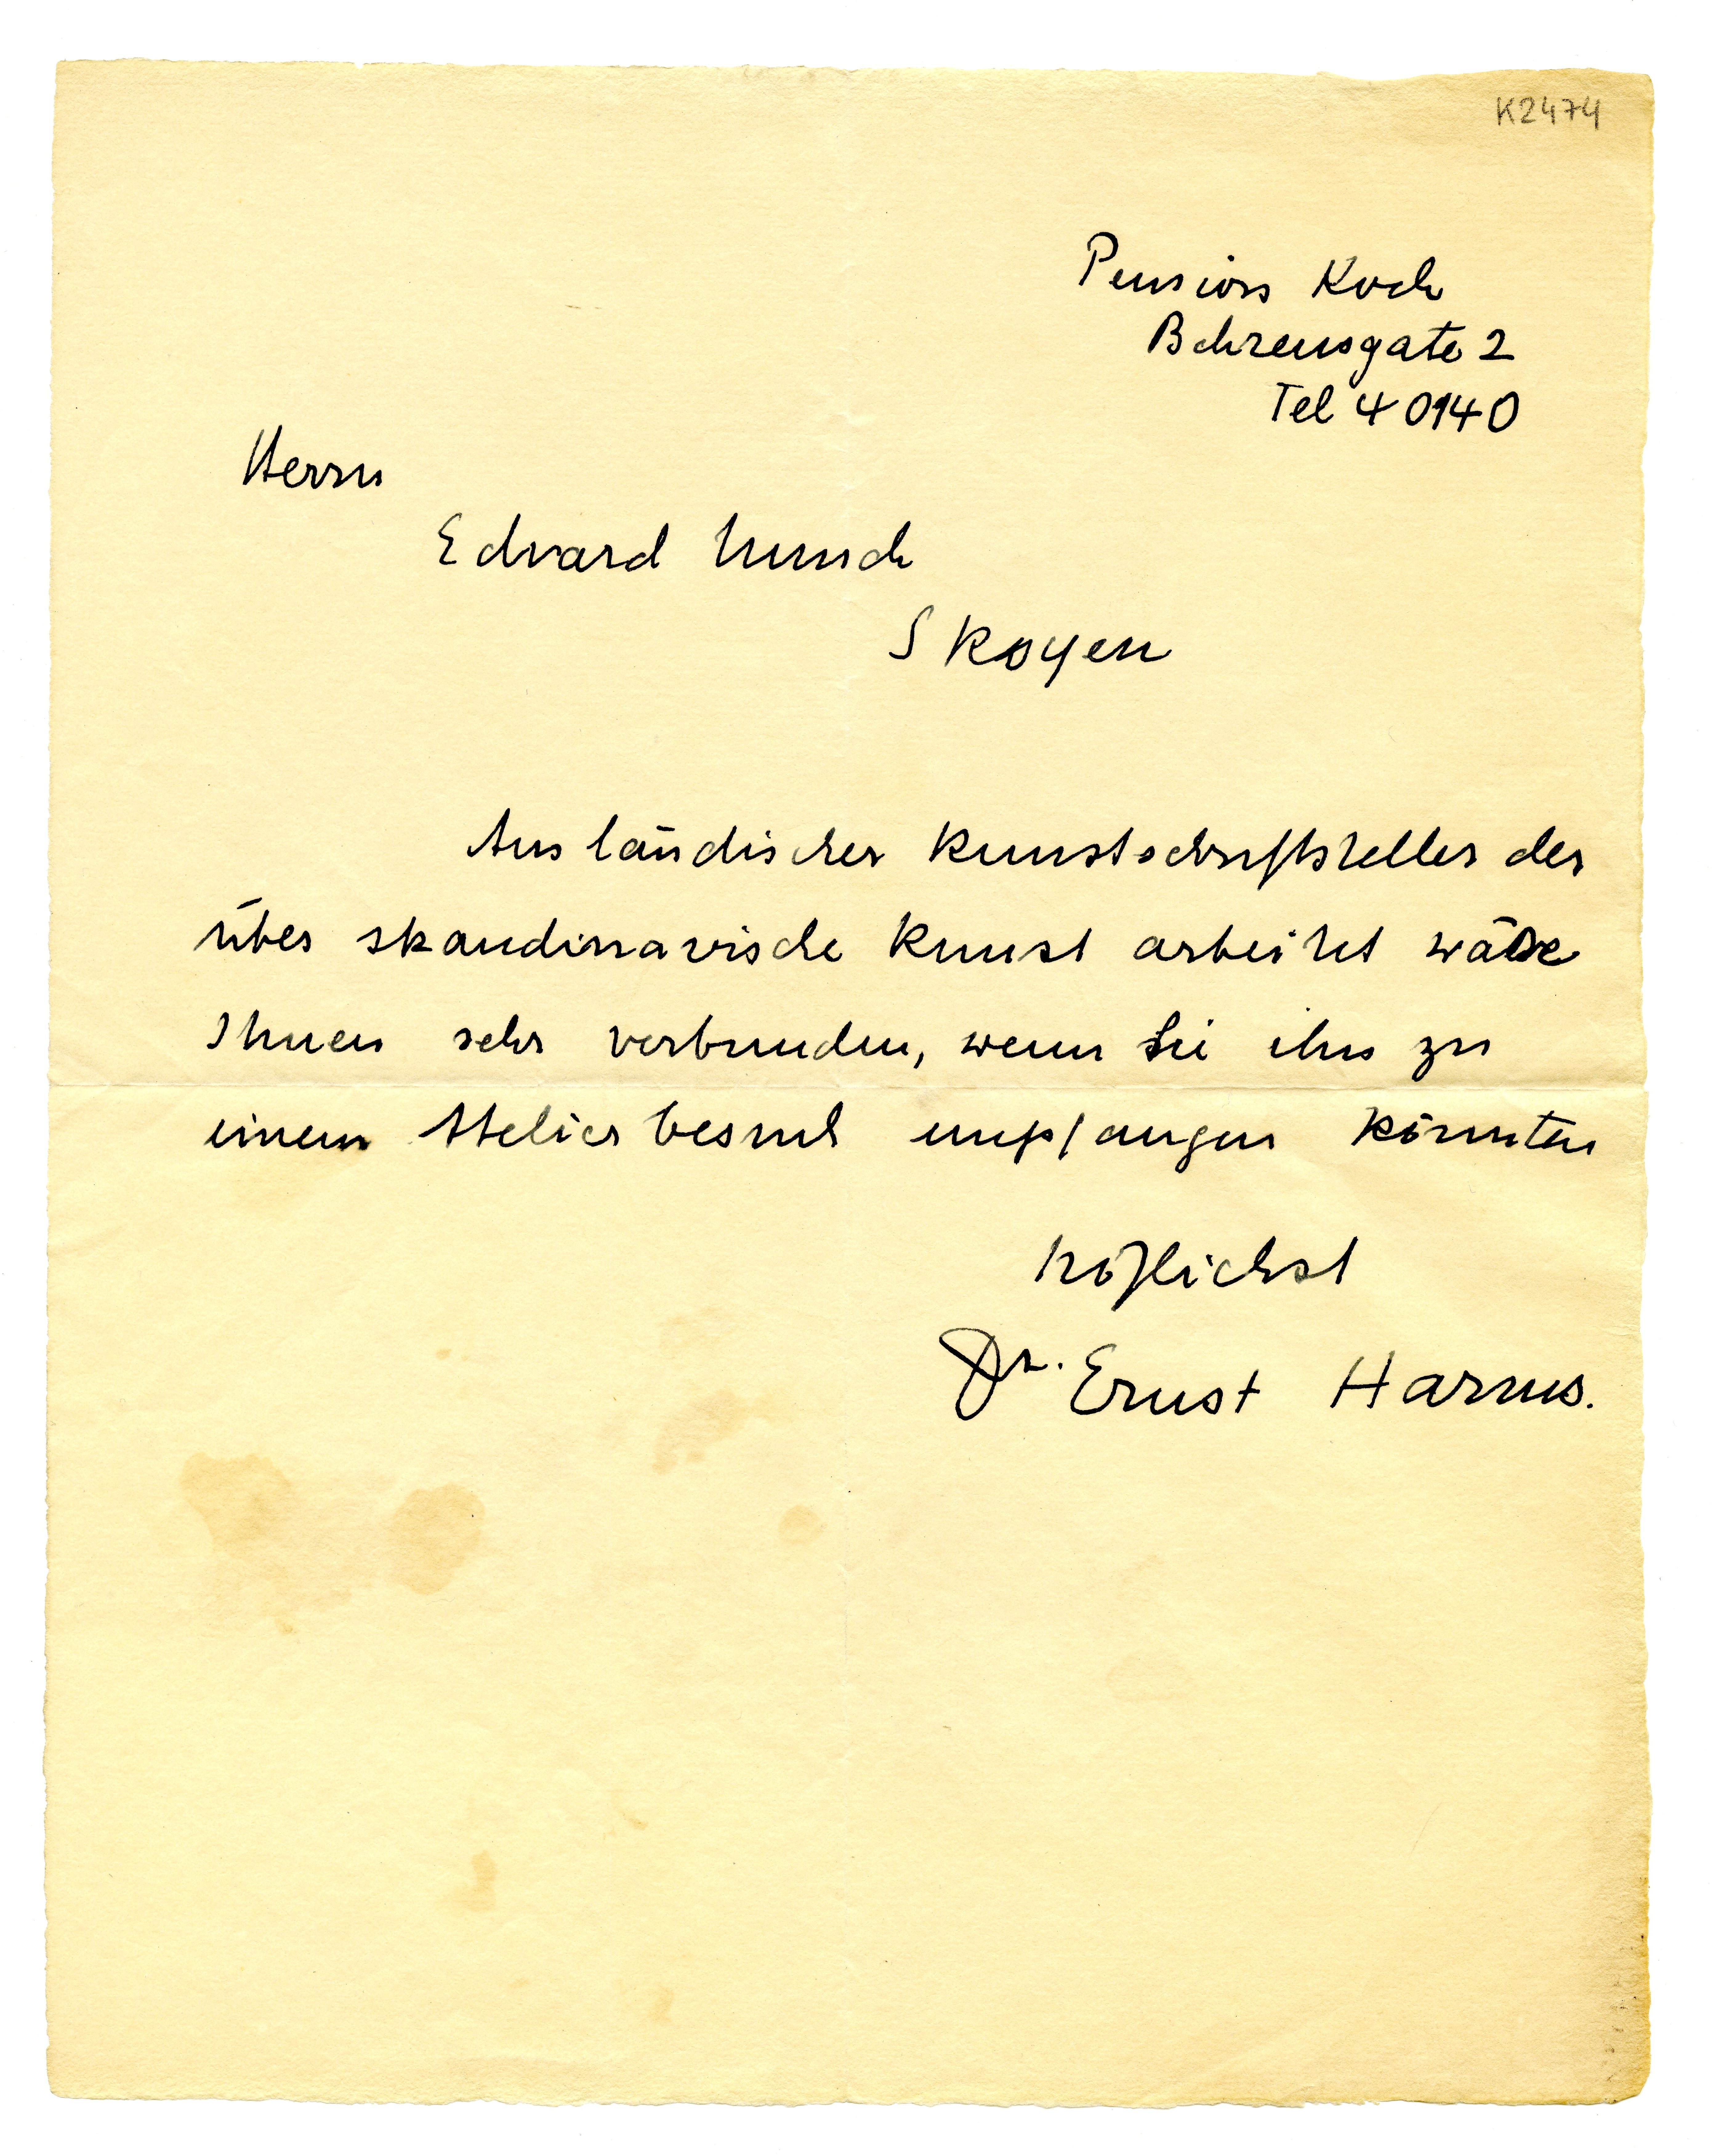 K2474
Pension Koch
Behrensgate 2
Tel 40140
Herrn
Edvard Munch
Skoyen
Ausländischer Kunstschriftsteller der
über skandinavische Kunst arbeitet wäre
Ihnen sehr verbunden, wenn Sie ihn zu
einem Atelierbesuch empfangen könnten
höflichst
Dr. Ernst Harms.